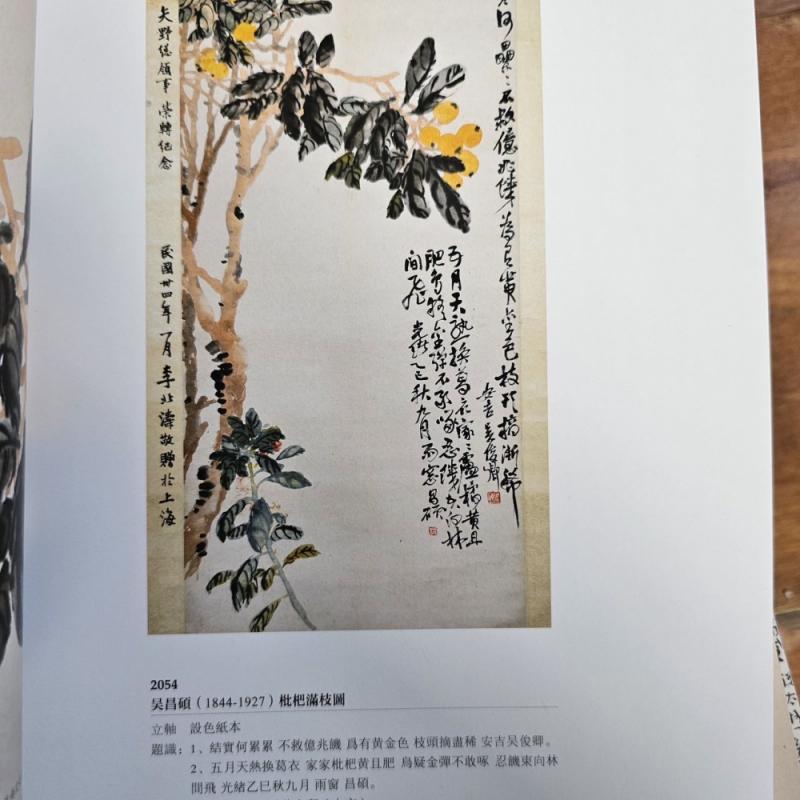 何纍〻不救億兆饑為有黃金色枝頭摘漸稀
安吉吳俊卿
五月天熱換葛衣家〻盧橘黃且
肥鳥疑金彈不敢啄忍饑空向林
間飛 光緒乙巳秋九月雨窗昌碩
矢野總領事 榮轉紀念
民國卅四年一月李北濤敬贈於上海
2054
吴昌碩（1844-1927）枇杷滿枝圖
立軸 設色紙本
題識：1、結實何累累 不救億兆饑 爲有黄金色 枝頭摘盡稀 安吉吴俊卿。
2、五月天熱換葛衣 家家枇杷黄且肥 鳥疑金彈不敢啄 忍饑東向林
間飛 光緒乙巳秋九月 雨窗 昌碩。